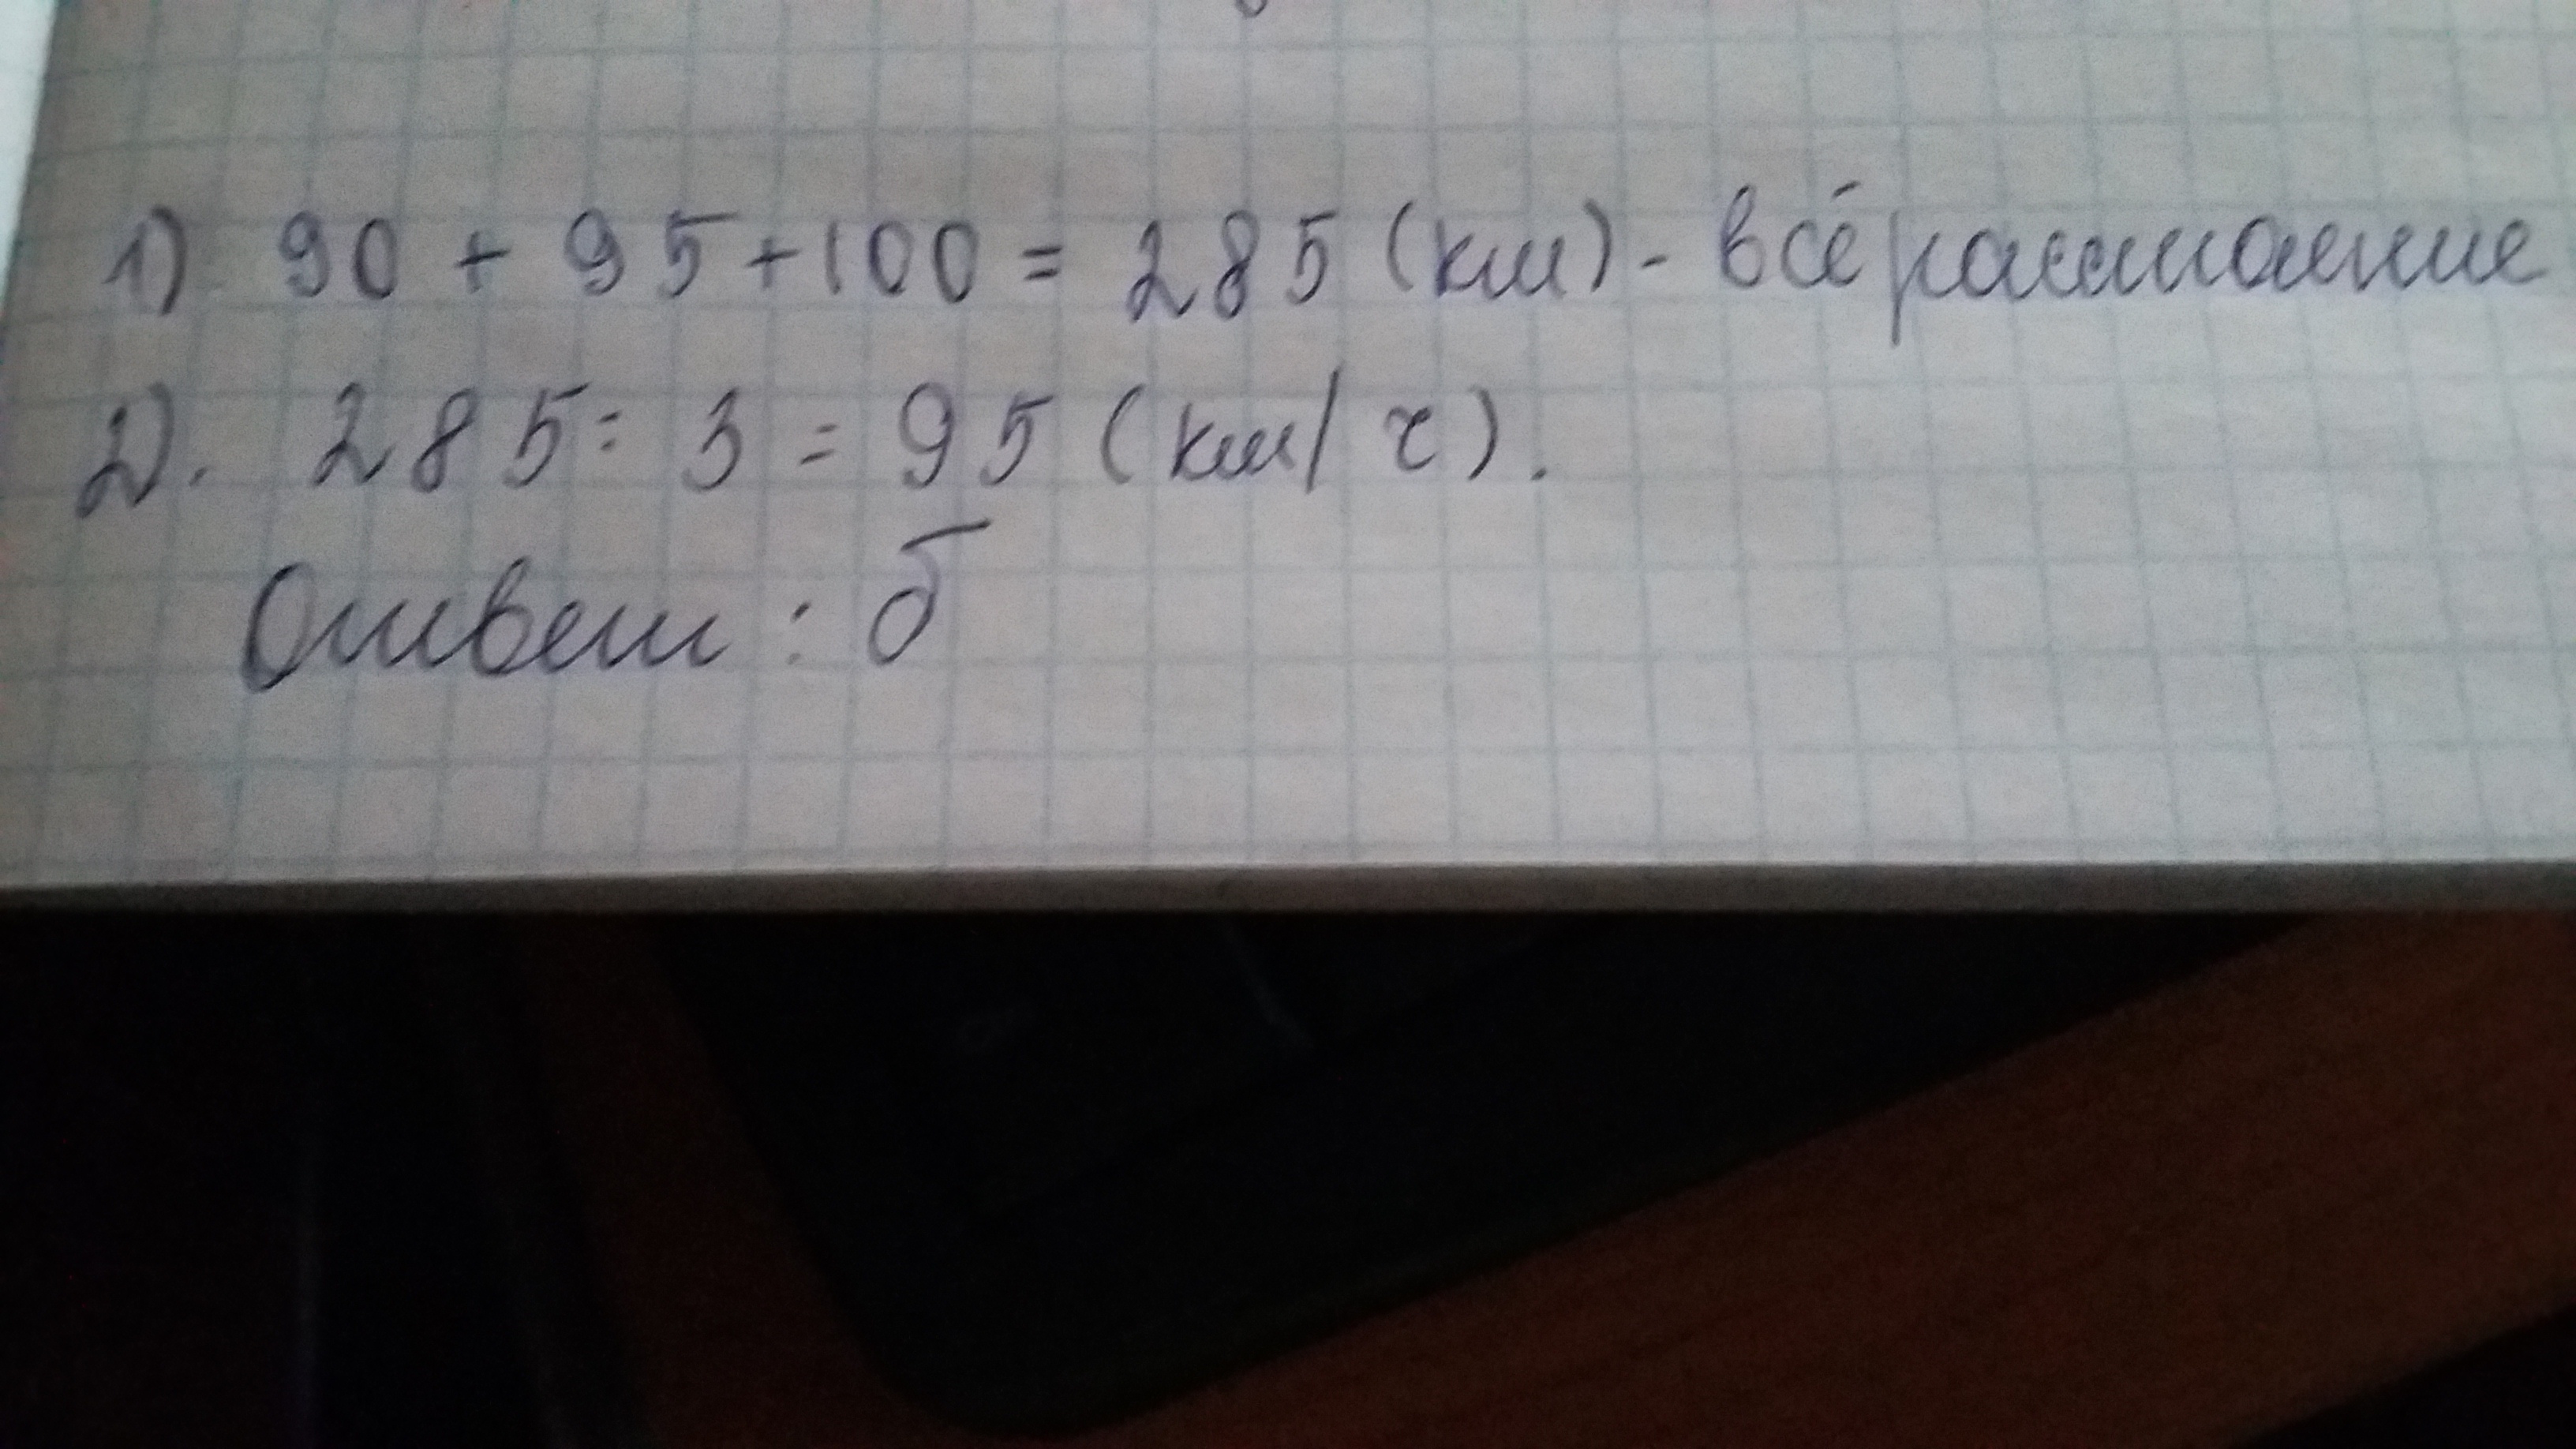 1) 90 + 95 + 100 = 285 (км) - всё расстояние
2). 285 : 3 = 95 (км/ч).
Ответ : б